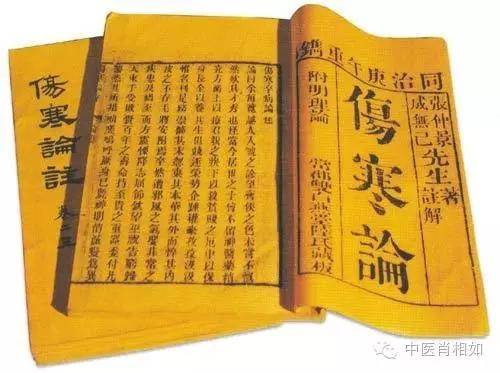 同治庚午年重鐫
張仲景
成無己
先生
著
註解
傷寒論
附明理論
常郡雙白燕堂陸氏藏板
傷寒卒病論集
論曰余每覽越人入虢之診望齊侯之色未嘗不慨
然歎其才秀也怪當今居世之士曾不留神醫藥精
究方術上以療君親之疾下以救貧賤之厄中以保
身長全以養其生但競逐榮勢企踵權豪孜孜汲汲
惟名利是務崇飾其末忽棄其本華其外而悴其內
皮之不存毛將安附焉卒然遭邪風之氣嬰非常之
疾患及禍至而方震慄降志屈節欽望巫祝告窮歸
天束手受敗賫百年之壽命持至貴之重器委付凡
醫恣其所措咄嗟嗚呼厥身已斃神明消滅變爲異
傷寒論註
中医肖相如